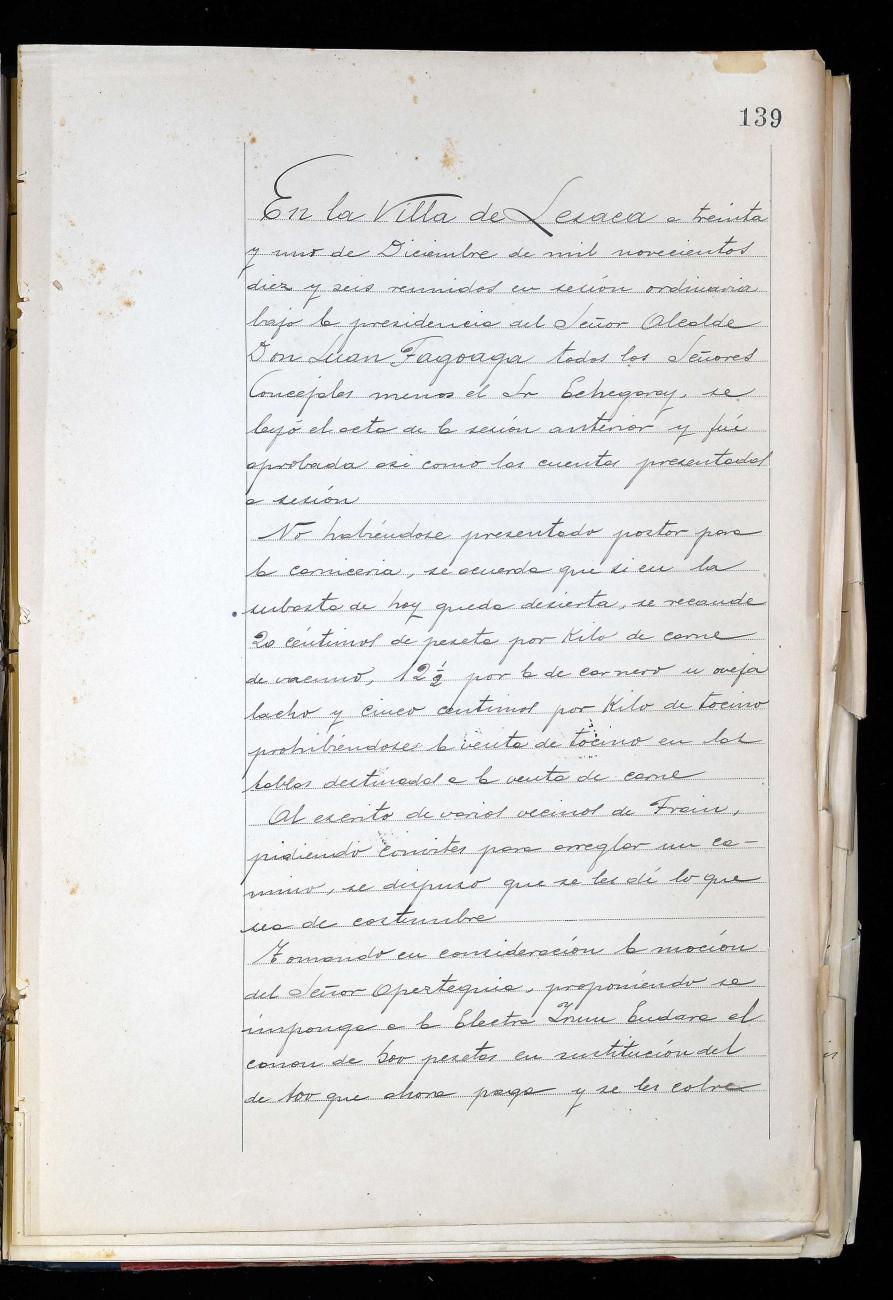 139
En la Villa de Lesaca a treinta
y uno de Diciembre de mil novecientos
diez y seis reunidos en sesión ordinaria
bajo la presidencia del Señor Alcalde
Don Juan Fagoaga todos los Señores
Concejales menos el Sr Echegaray, se
leyó el acta de la sesión anterior y fué
aprobada asi como las cuentas presentadas
a sesión
No habiéndose presentado postor para
la carniceria, se acuerda que si en la
subasta de hoy queda desierta, se recaude
20 céntimos de peseta por Kilo de carne
de vacuno, 12 1/2 por la de carnero u oveja
lacho y cinco centimos por Kilo de tocino
prohibiéndoses la venta de tocino en las
tablas destinadas a la venta de carne
Al escrito de varios vecinos de Frain,
pidiendo convites para arreglar un ca-
mino, se dispuso que se les dé lo que
sea de costumbre
Tomando en consideración la moción
del Señor Apezteguia, proponiendo se
imponga a la Electra Irun Endara el
canon de 500 pesetas en sustitución del
de 100 que ahora paga y se les cobre